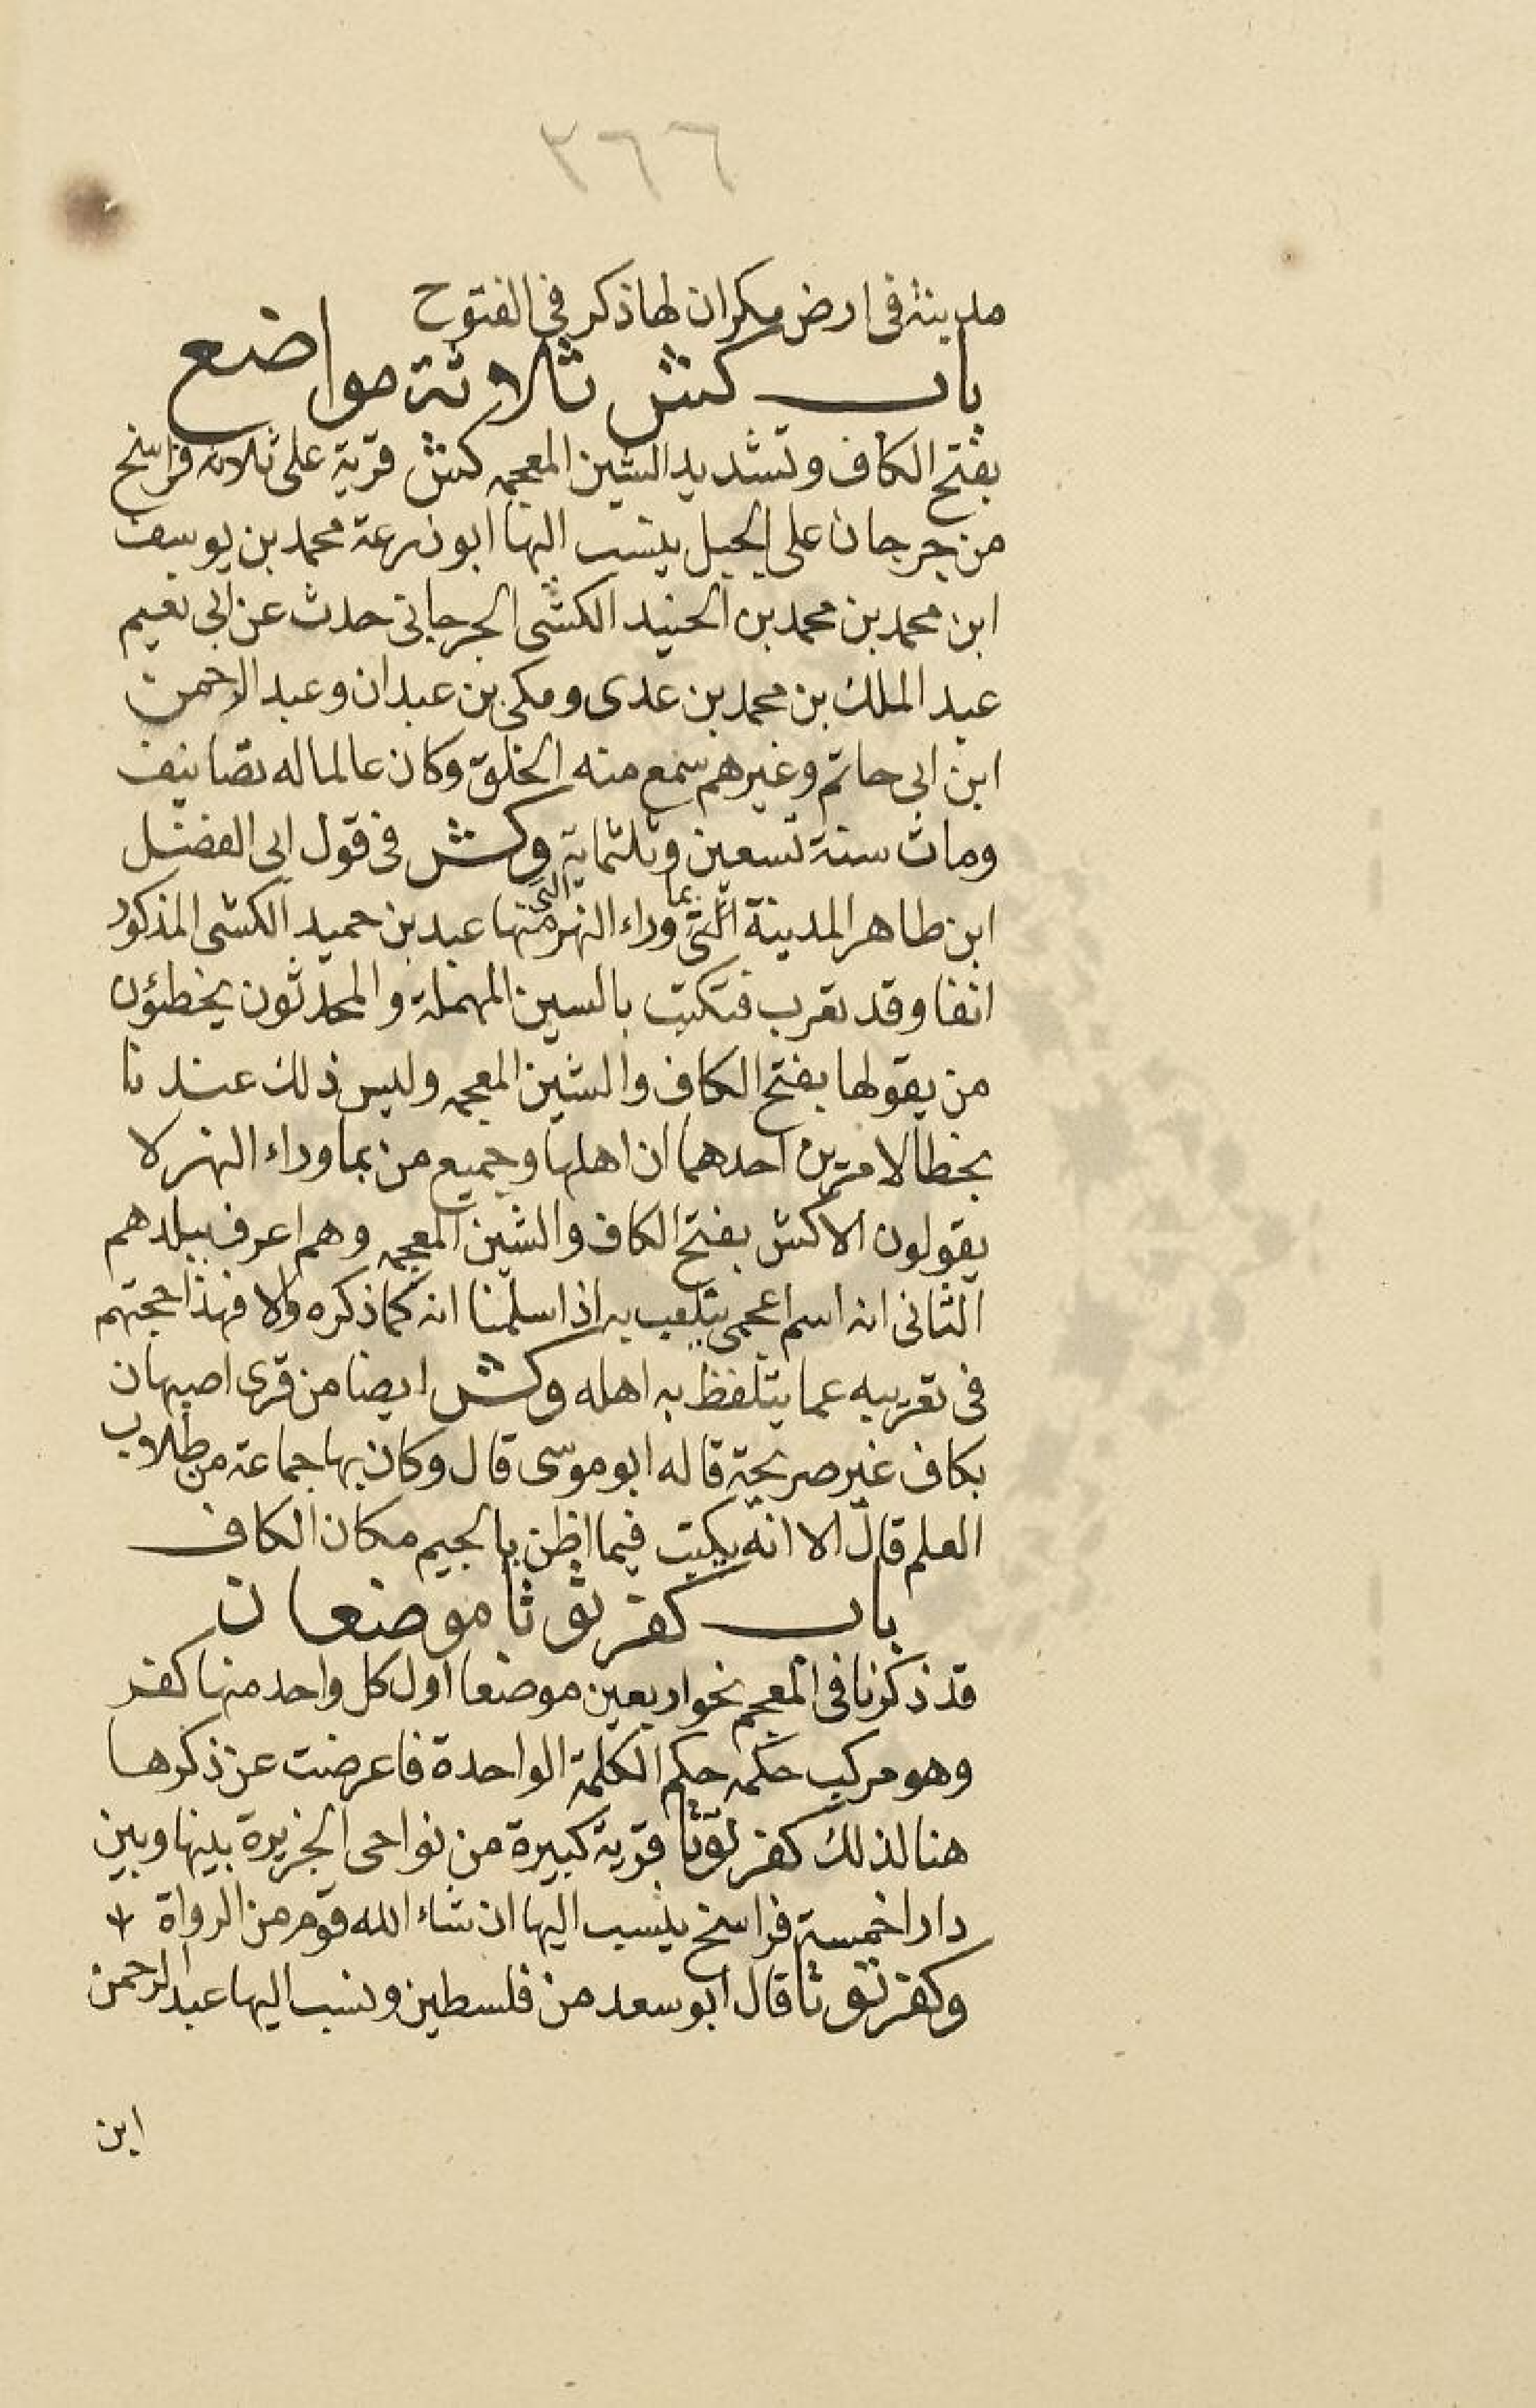 ٣٦٦
مدينة فى ارض مكران لها ذكر فى الفتوح
باب كش ثلاثة مواضع
بفتح الكاف وتشديد الشين المعجمه كش قرية على ثلاثه فراسخ
من جرجان على الجبل ينسب اليها ابو زرعة محمد بن يوسف
ابن محمد بن محمد بن الجنيد الكشى الجرجانى حدث عن ابى نعيم
عبد الملك بن محمد بن عدى ومكى بن عبدان وعبد الرحمن
ابن ابى حاتم وغيرهم سمع منه الخلق وكان عالما له تصانيف
ومات سنة تسعين وثلثماية وكش فى قول ابى الفضل
ابن طاهر المدينة التى بما وراء النهر التى منها عبد بن حميد الكشى المذكور
انفا وقد تعرب فتكتب بالسين المهملة والمحدثون يخطئون
من يقولها بفتح الكاف والشين المعجمه وليس ذلك عندنا
بخطا لامرين احدهما ان اهلها وجميع من بما وراء النهر لا
يقولون الا كش بفتح الكاف والشين المعجمه وهم اعرف ببلدهم
الثانى انه اسم اعجمى يتلعب به اذا سلمنا انه كما ذكره والا فهذا حجتهم
فى تعريبه عما يتلفظ به اهله وكش ايضا من قرى اصبهان
بكاف غير صريحة قاله ابو موسى قال وكان بها جماعة من طلاب
العلم قال الا انه يكتب فيما اظن بالجيم مكان الكاف
باب كفرتوثا موضعان
قد ذكرنا فى المعجم نحو اربعين موضعا اول كل واحد منها كفر
وهو مركب حكمه حكم الكلمة الواحدة فاعرضت عن ذكرها
هنا لذلك كفرتوثا قرية كبيرة من نواحى الجزيرة بينها وبين
دارا خمسة فراسخ ينسب اليها ان شاء الله قوم من الرواة
وكفرتوثا قال ابو سعد من فلسطين ونسب اليها عبد الرحمن
ابن